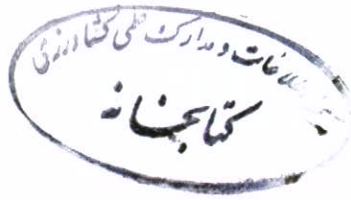 اطلاعات و مدارک علمی کشاورزی
کتابخانه